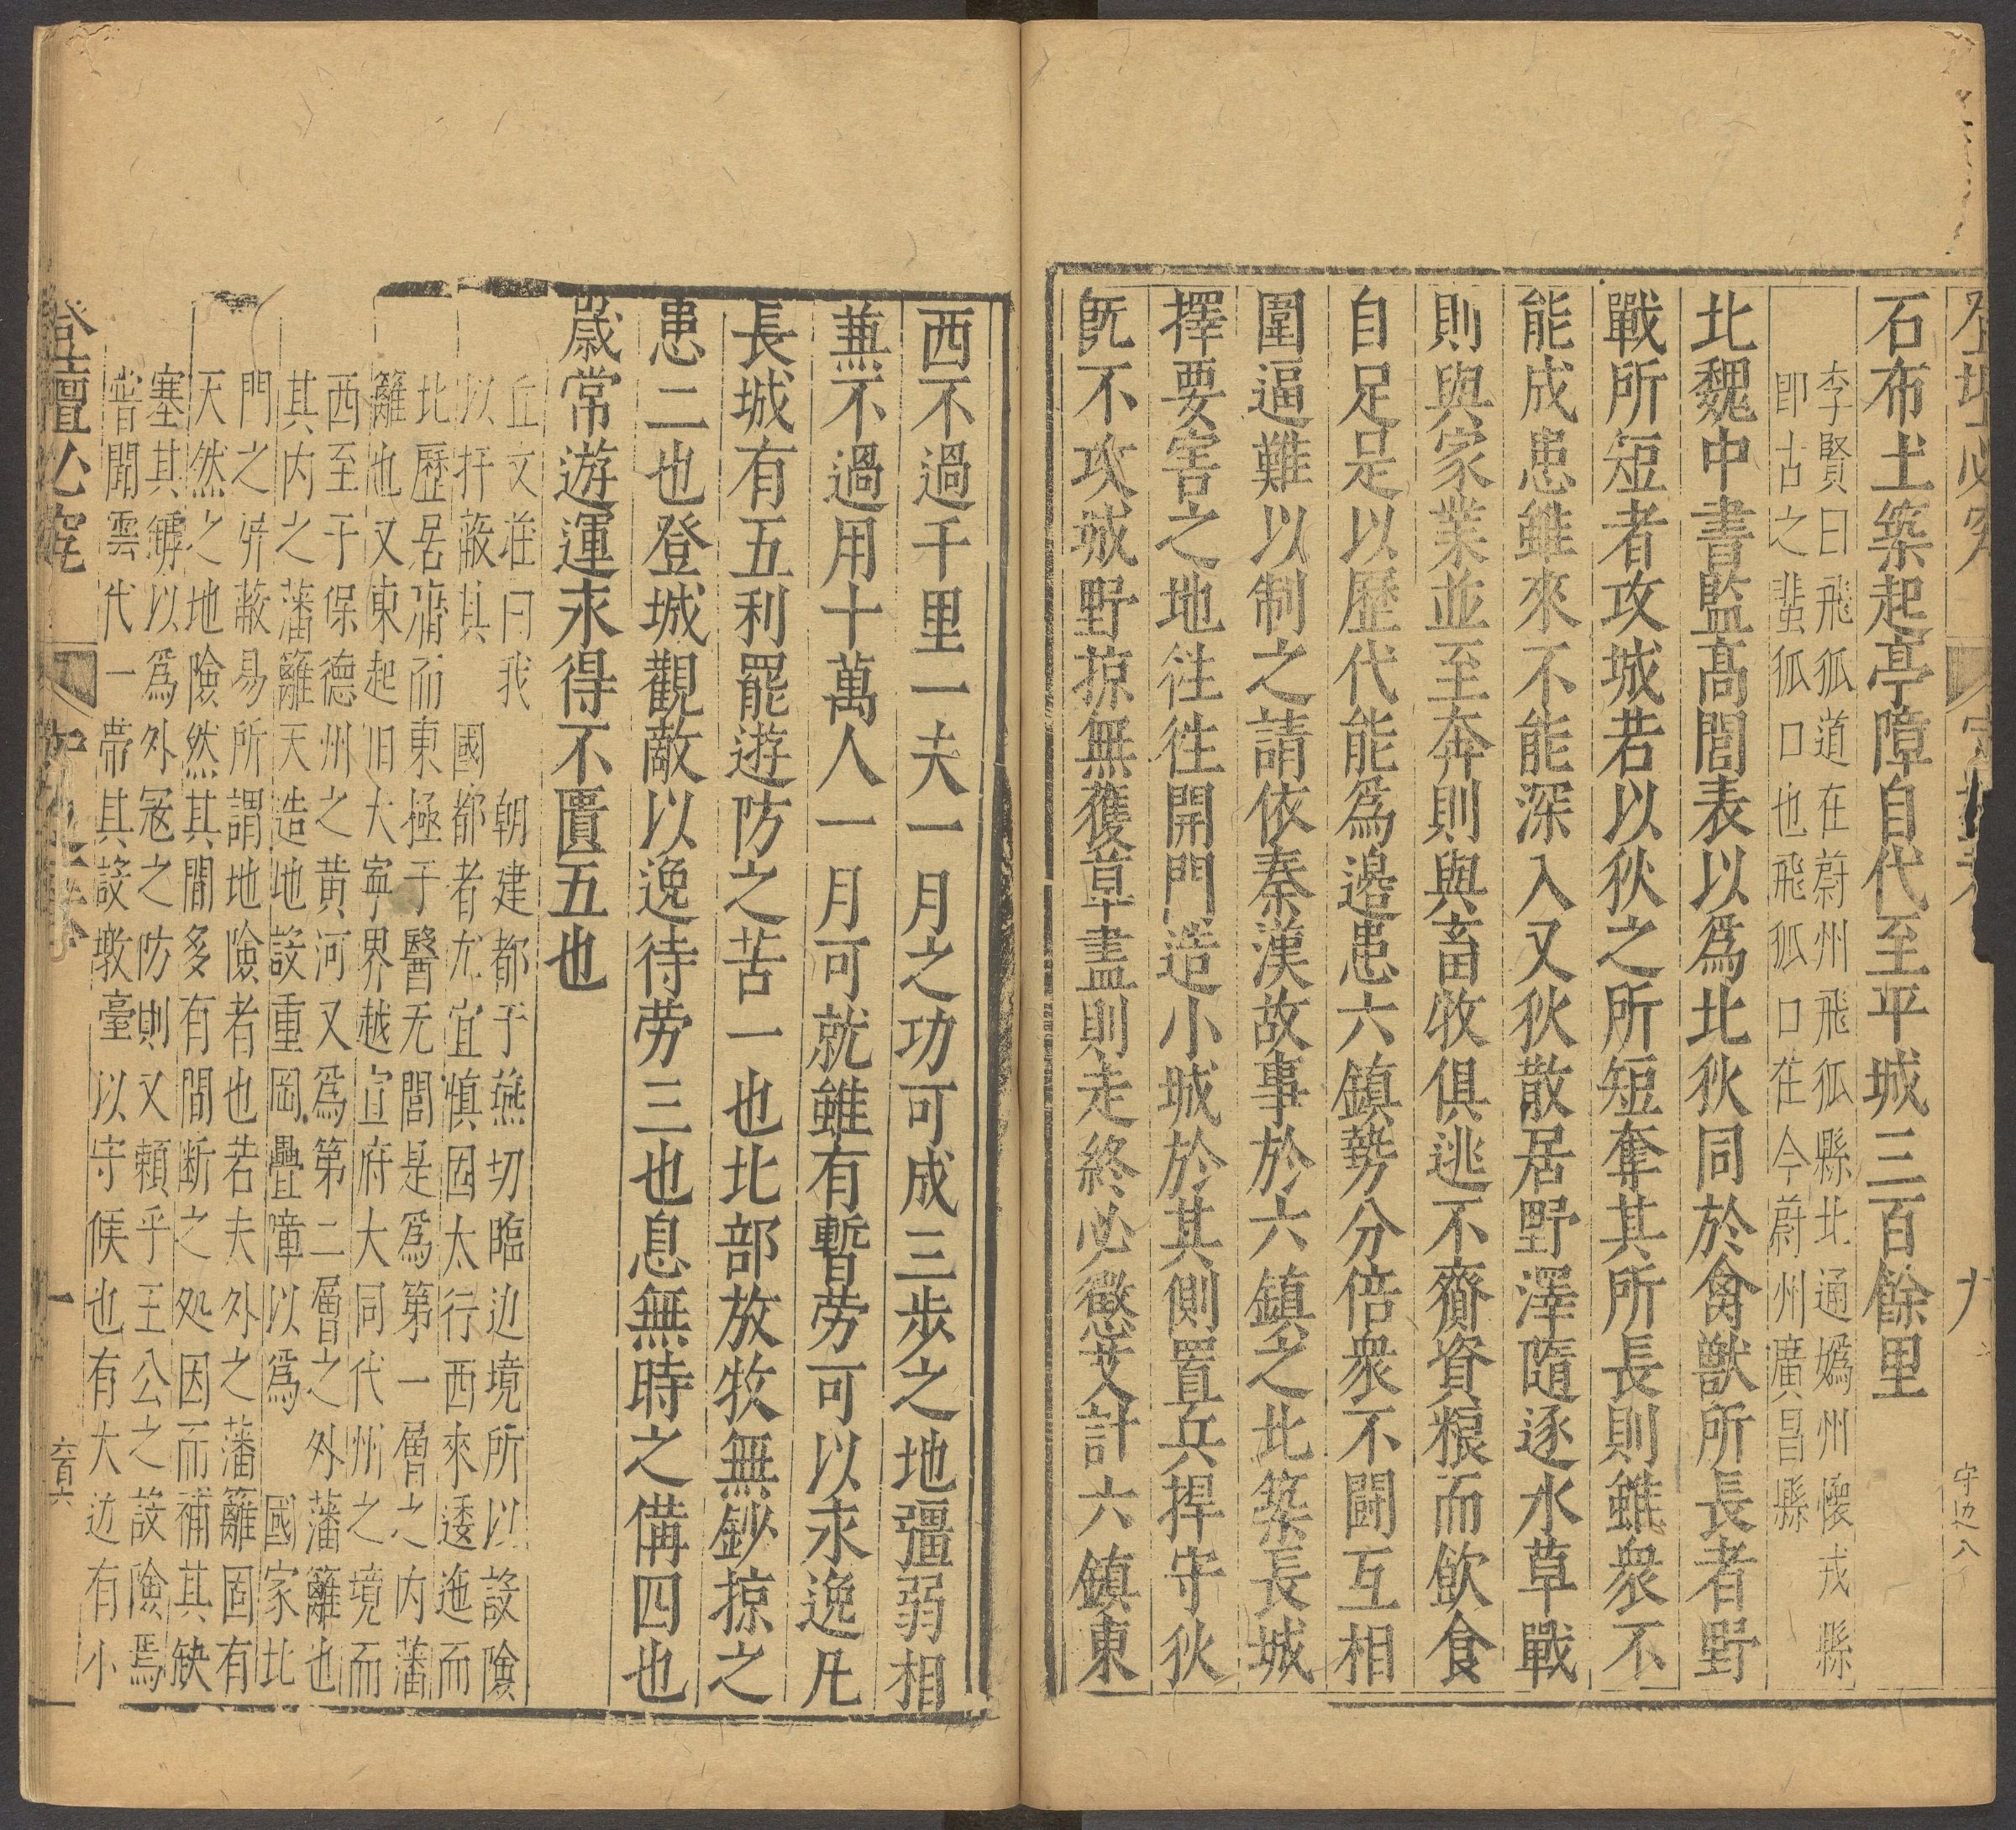 登壇必究
九
守边八
石布土築起亭障自代至平城三百餘里
李賢曰飛狐道在蔚州飛狐縣北通媯州懷戎縣
即古之蜚狐口也飛狐口在今蔚州廣昌縣
北魏中書監高閭表以爲北狄同於禽獸所長者野
戰所短者攻城若以狄之所短奪其所長則雖衆不
能成患雖來不能深入又狄散居野澤隨逐水草戰
則與家業並至奔則與畜牧俱逃不齎資糧而飲食
自足是以歷代能爲邊患六鎮勢分倍衆不鬪互相
圍逼難以制之請依秦漢故事於六鎮之北築長城
擇要害之地徃徃開門造小城於其側置兵捍守狄
旣不攻城野掠無獲草盡則走終必懲艾計六鎮東
西不過千里一夫一月之功可成三步之地彊弱相
兼不過用十萬人一月可就雖有暫劳可以永逸凡
長城有五利罷遊防之苦一也北部放牧無鈔掠之
患二也登城觀敵以逸待劳三也息無時之備四也
歲常遊運永得不匱五也
丘文莊曰我　朝建都于燕切臨边境所以設險
以扞蔽其　國都者尤宜慎固太行西來逶迤而
北歷居庸而東極于醫无閭是爲第一層之内藩
籬也又東起旧大寧界越宣府大同代州之境而
西至于保德州之黄河又爲第二層之外藩籬也
其内之藩籬天造地設重岡疊嶂以爲　國家北
門之屏蔽易所謂地險者也若夫外之藩籬固有
天然之地險然其間多有間断之処因而補其缺
塞其罅以為外寇之防則又賴乎王公之設險焉
嘗聞雲代一帶其設墩臺以守候也有大边有小
登壇必究
六百六